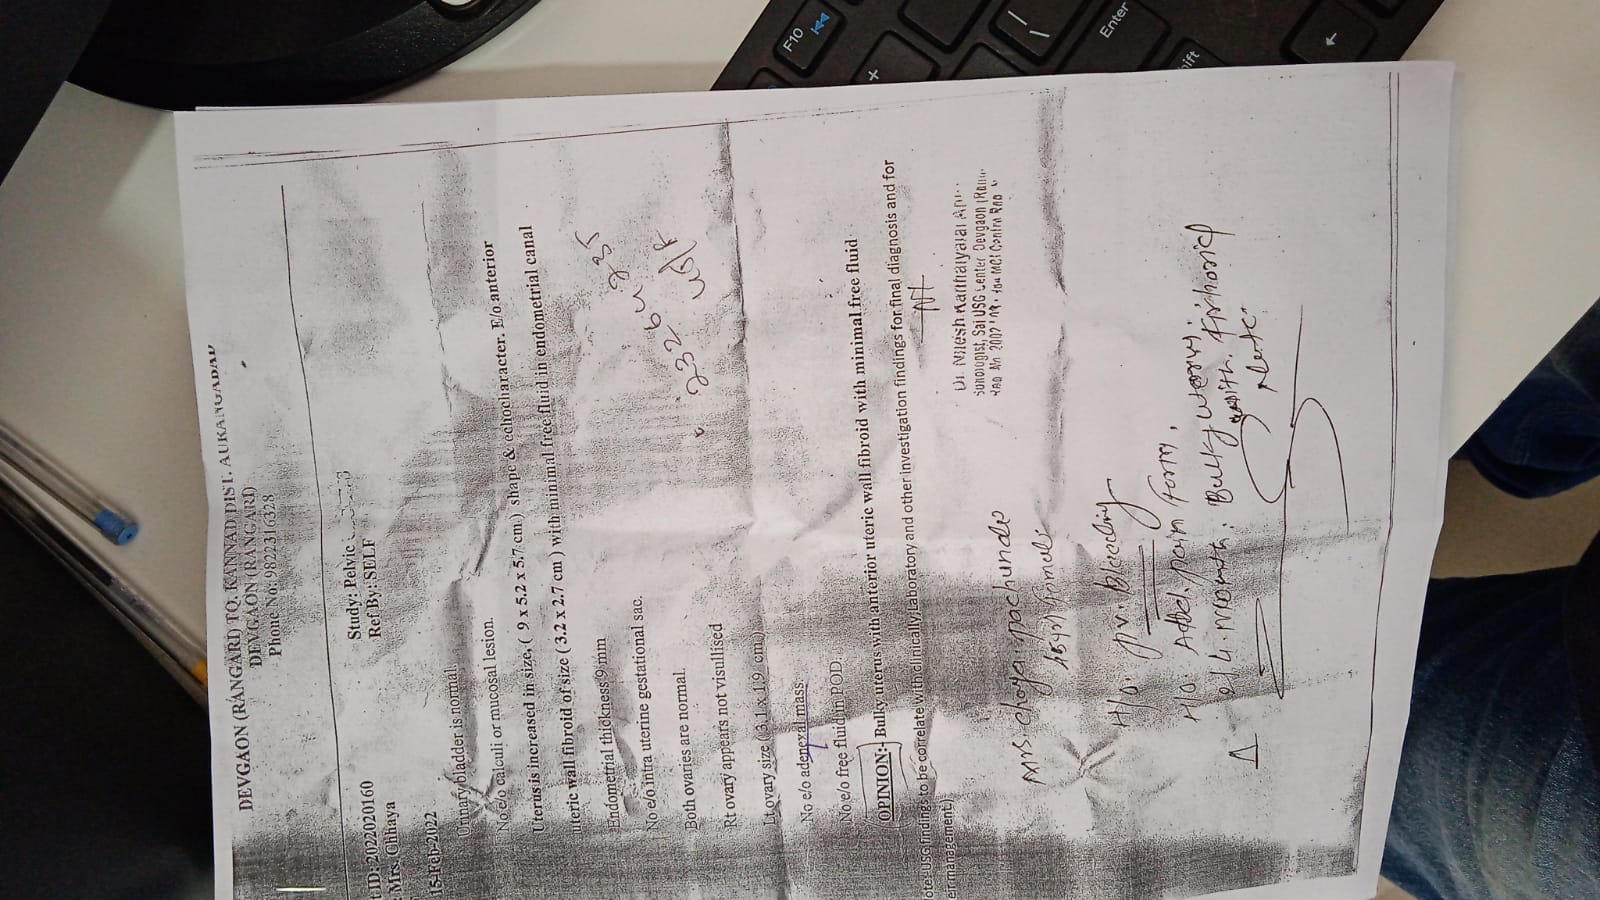 DEVGAON (RANGARI) TQ. KANNAD DIST. AURANGABAD
DEVGAON (RANGARI)
Phone No: 9822316328
tID: 2022020160
Study: Pelvic
: Mrs. Chhaya
Ref By: SELF
15-Feb-2022
Urinary bladder is normal.
No e/o calculi or mucosal lesion.
Uterus is increased in size, ( 9 x 5.2 x 5.7 cm) shape & echocharacter. E/o anterior
uteric wall fibroid of size ( 3.2 x 2.7 cm ) with minimal free fluid in endometrial canal
Endometrial thickness 9 mm
No e/o intra uterine gestational sac.
Both ovaries are normal.
Rt ovary appears not visullised
Lt ovary size ( 3.1 x 1.9 cm)
No e/o adenexal mass.
No e/o free fluid in POD.
OPINION:- Bulky uterus with anterior uteric wall fibroid with minimal free fluid
ote: USG findings to be correlate with clinically, laboratory and other investigation findings for final diagnosis and for
management)
Dr. Nilesh
Sonologist, Sai USG Center Devgaon
Mrs. chaya pachunde
H/o. P.V. Bleeding
H/o. Abd. pain form,
3/4 month. Bulky
with